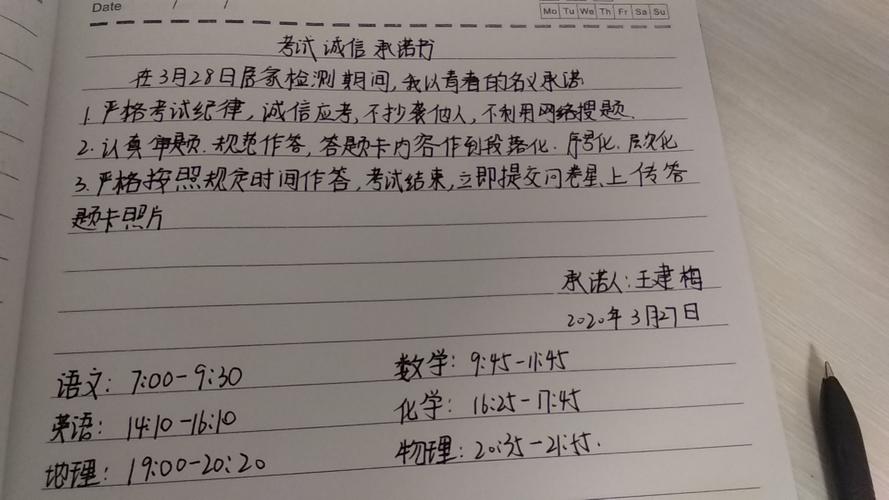 Date / /
Mo Tu We Th Fr Sa Su
考试诚信承诺书
在3月28日居家检测期间,我以青春的名义承诺
1.严格考试纪律,诚信应考,不抄袭他人,不利用网络搜题.
2.认真审题.规范作答,答题卡内容作到段落化.序号化.层次化
3.严格按照规定时间作答,考试结束,立即提交问卷星上传答
题卡照片
承诺人:王建梅
2020年3月27日
语文:7:00-9:30 数学:9:45-11:45
英语:14:10-16:10 化学:16:25-17:45
地理:19:00-20:20 物理:20:35-21:45.